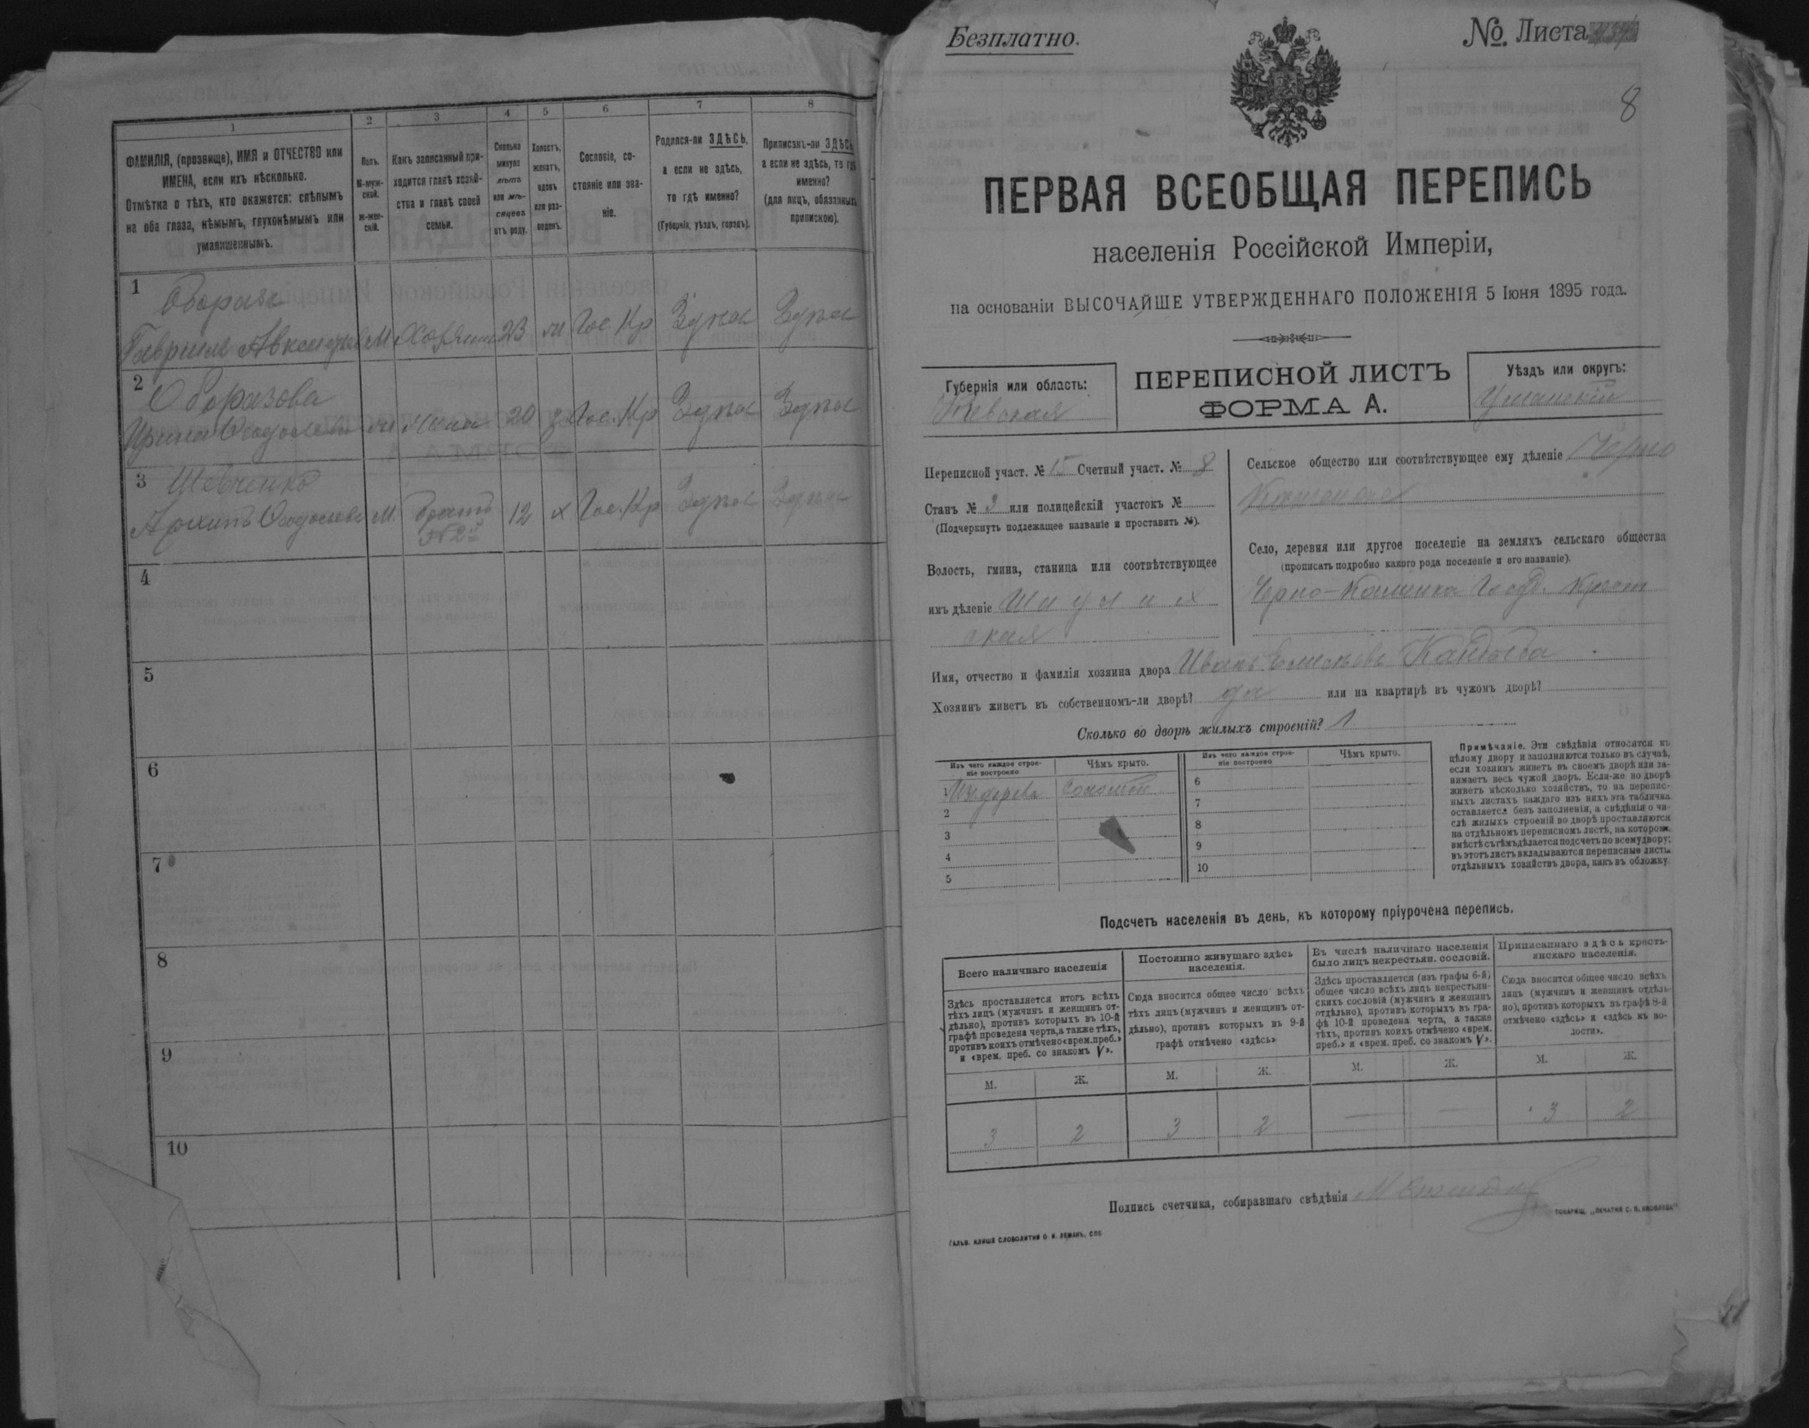 1
2
3
4
5
6
7
8
ФАМИЛІЯ, (прозвище), ИМЯ и ОТЧЕСТВО или
ИМЕНА, если ихъ нѣсколько.
Отмѣтка о тѣхъ, кто окажется: слѣпымъ
на оба глаза, нѣмымъ, глухонѣмымъ или
умалишеннымъ.
Полъ.
М-муж-
ской.
ж-жен-
скій.
Какъ записанный при-
ходится главѣ хозяй-
ства и главѣ своей
семьи.
Сколько
минуло
лѣтъ
или мѣ-
сяцевъ
отъ роду.
Холостъ,
женатъ,
вдовъ
или раз-
веденъ.
Сословіе, со-
стояніе или зва-
ніе.
Родился-ли ЗДѢСЬ,
а если не здѣсь,
то гдѣ именно?
(Губернія, уѣздъ, городъ).
Приписанъ-ли ЗДѢСЬ,
а если не здѣсь, то гдѣ
именно?
(для лицъ, обязанныхъ
припискою).
1
М 23 Гос. Кр
2
Образова
20 Гос. Кр
3 Шевченко
М. братъ 12 х Гос. Кр
4
5
6
7
8
9
10
Безплатно.
№ Листа
8
ПЕРВАЯ ВСЕОБЩАЯ ПЕРЕПИСЬ
населенія Россійской Имперіи,
на основаніи ВЫСОЧАЙШЕ УТВЕРЖДЕННАГО ПОЛОЖЕНІЯ 5 Іюня 1895 года.
Губернія или область:
Кіевская
ПЕРЕПИСНОЙ ЛИСТЪ
ФОРМА А.
Уѣздъ или округъ:
Уманскій
Переписной участ. № 15 Счетный участ. № 8
Станъ № 3 или полицейскій участокъ №
(Подчеркнуть подлежащее названіе и проставить №).
Волость, гмина, станица или соотвѣтствующее
имъ дѣленіе
ская
Сельское общество или соотвѣтствующее ему дѣленіе Черно
Село, деревня или другое поселеніе на земляхъ сельскаго общества
(прописать подробно какого рода поселеніе и его названіе).
Черно-Каменка Госуд. Крест
Имя, отчество и фамилія хозяина двора Иванъ
Хозяинъ живетъ въ собственномъ-ли дворѣ? да или на квартирѣ въ чужомъ дворѣ?
Сколько во дворѣ жилыхъ строеній? 1
Изъ чего каждое строе-
ніе построено
Чѣмъ крыто.
Изъ чего каждое строе-
ніе построено
Чѣмъ крыто.
1 Изъ дерева Соломой
2
3
4
5
6
7
8
9
10
Примѣчаніе. Эти свѣдѣнія относятся къ
цѣлому двору и заполняются только въ случаѣ,
если хозяинъ живетъ въ своемъ дворѣ или за-
нимаетъ весь чужой дворъ. Если-же во дворѣ
живетъ нѣсколько хозяйствъ, то на перепис-
ныхъ листахъ каждаго изъ нихъ эта табличка
оставляется безъ заполненія, а свѣдѣнія о чи-
слѣ жилыхъ строеній во дворѣ проставляются
на отдѣльномъ переписномъ листѣ, на которомъ
вмѣстѣ съ тѣмъ дѣлается подсчетъ по всему двору;
въ этотъ листъ вкладываются переписные листы
отдѣльныхъ хозяйствъ двора, какъ въ обложку.
Подсчетъ населенія въ день, къ которому пріурочена перепись.
Всего наличнаго населенія
Постоянно живущаго здѣсь
населенія.
Въ числѣ наличнаго населенія
было лицъ некрестьян. сословій.
Приписаннаго здѣсь кресть-
янскаго населенія.
Здѣсь проставляется итогъ всѣхъ
тѣхъ лицъ (мужчинъ и женщинъ от-
дѣльно), противъ которыхъ въ 10-й
графѣ проведена черта, а также тѣхъ,
противъ коихъ отмѣчено «врем. преб.»
и «врем. преб. со знакомъ V».
Сюда вносится общее число всѣхъ
тѣхъ лицъ (мужчинъ и женщинъ от-
дѣльно), противъ которыхъ въ 9-й
графѣ отмѣчено «здѣсь»
Здѣсь проставляется (изъ графы 6-й)
общее число всѣхъ лицъ некрестьян-
скихъ сословій (мужчинъ и женщинъ
отдѣльно), противъ которыхъ въ гра-
фѣ 10-й проведена черта, а также
тѣхъ, противъ коихъ отмѣчено «врем.
преб.» и «врем. преб. со знакомъ V».
Сюда вносится общее число всѣхъ
лицъ (мужчинъ и женщинъ отдѣль-
но), противъ которыхъ въ графѣ 8-й
отмѣчено «здѣсь» и «здѣсь въ во-
лости».
М. Ж. М. Ж. М. Ж. М. Ж.
3 2 3 2 — — 3 2
Подпись счетчика, собиравшаго свѣдѣнія
ГАЛЬВ. КЛИШЕ СЛОВОЛИТНИ О. И. ЛЕМАНЪ, СПБ.
ТОВАРИЩ. „ПЕЧАТНЯ С. П. ЯКОВЛЕВА“